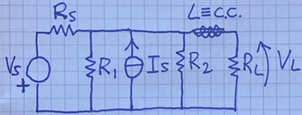 Rs L≡C.C.
Vs + R1 Is R2 RL VL